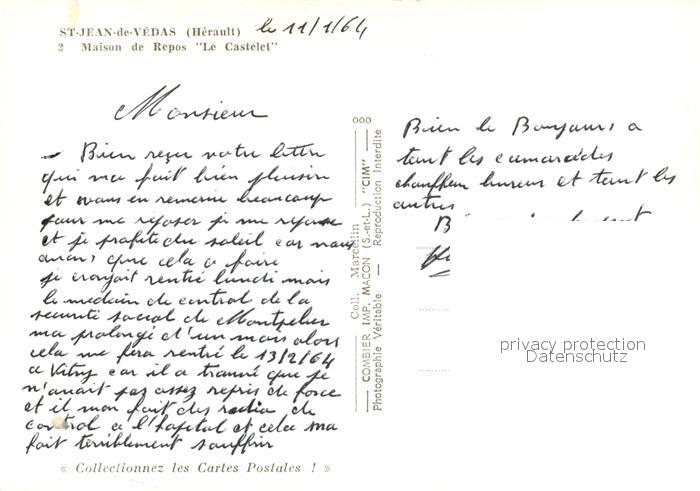 ST-JEAN-de-VÉDAS (Hérault) le 11/1/64
2 Maison de Repos "Le Castelet"
Monsieur
Bien reçu votre lettre
qui ma fait bien plaisir
et vous en remercie beaucoup
pour me reposer je me repose
et je profite du soleil car nous
avons que cela a faire
je croyait rentré lundi mais
le medecin de control de la
securité social de Montpelier
ma prolongé d'un mois alors
cela me fera rentré le 13/2/64
a Vitry car il a trouvé que je
n'avait pas assez repris de force
et il mon fait des radio de
control a l'hopital et cela ma
fait terriblement souffrir
« Collectionnez les Cartes Postales ! »
ooo
Coll. Marcellin
COMBIER IMP. MACON (S.-et-L.) "CIM"
Photographie Véritable — Reproduction Interdite
Bien le Bonjours a
tout les camarades
chauffeur bureux et tout les
autres
privacy protection
Datenschutz